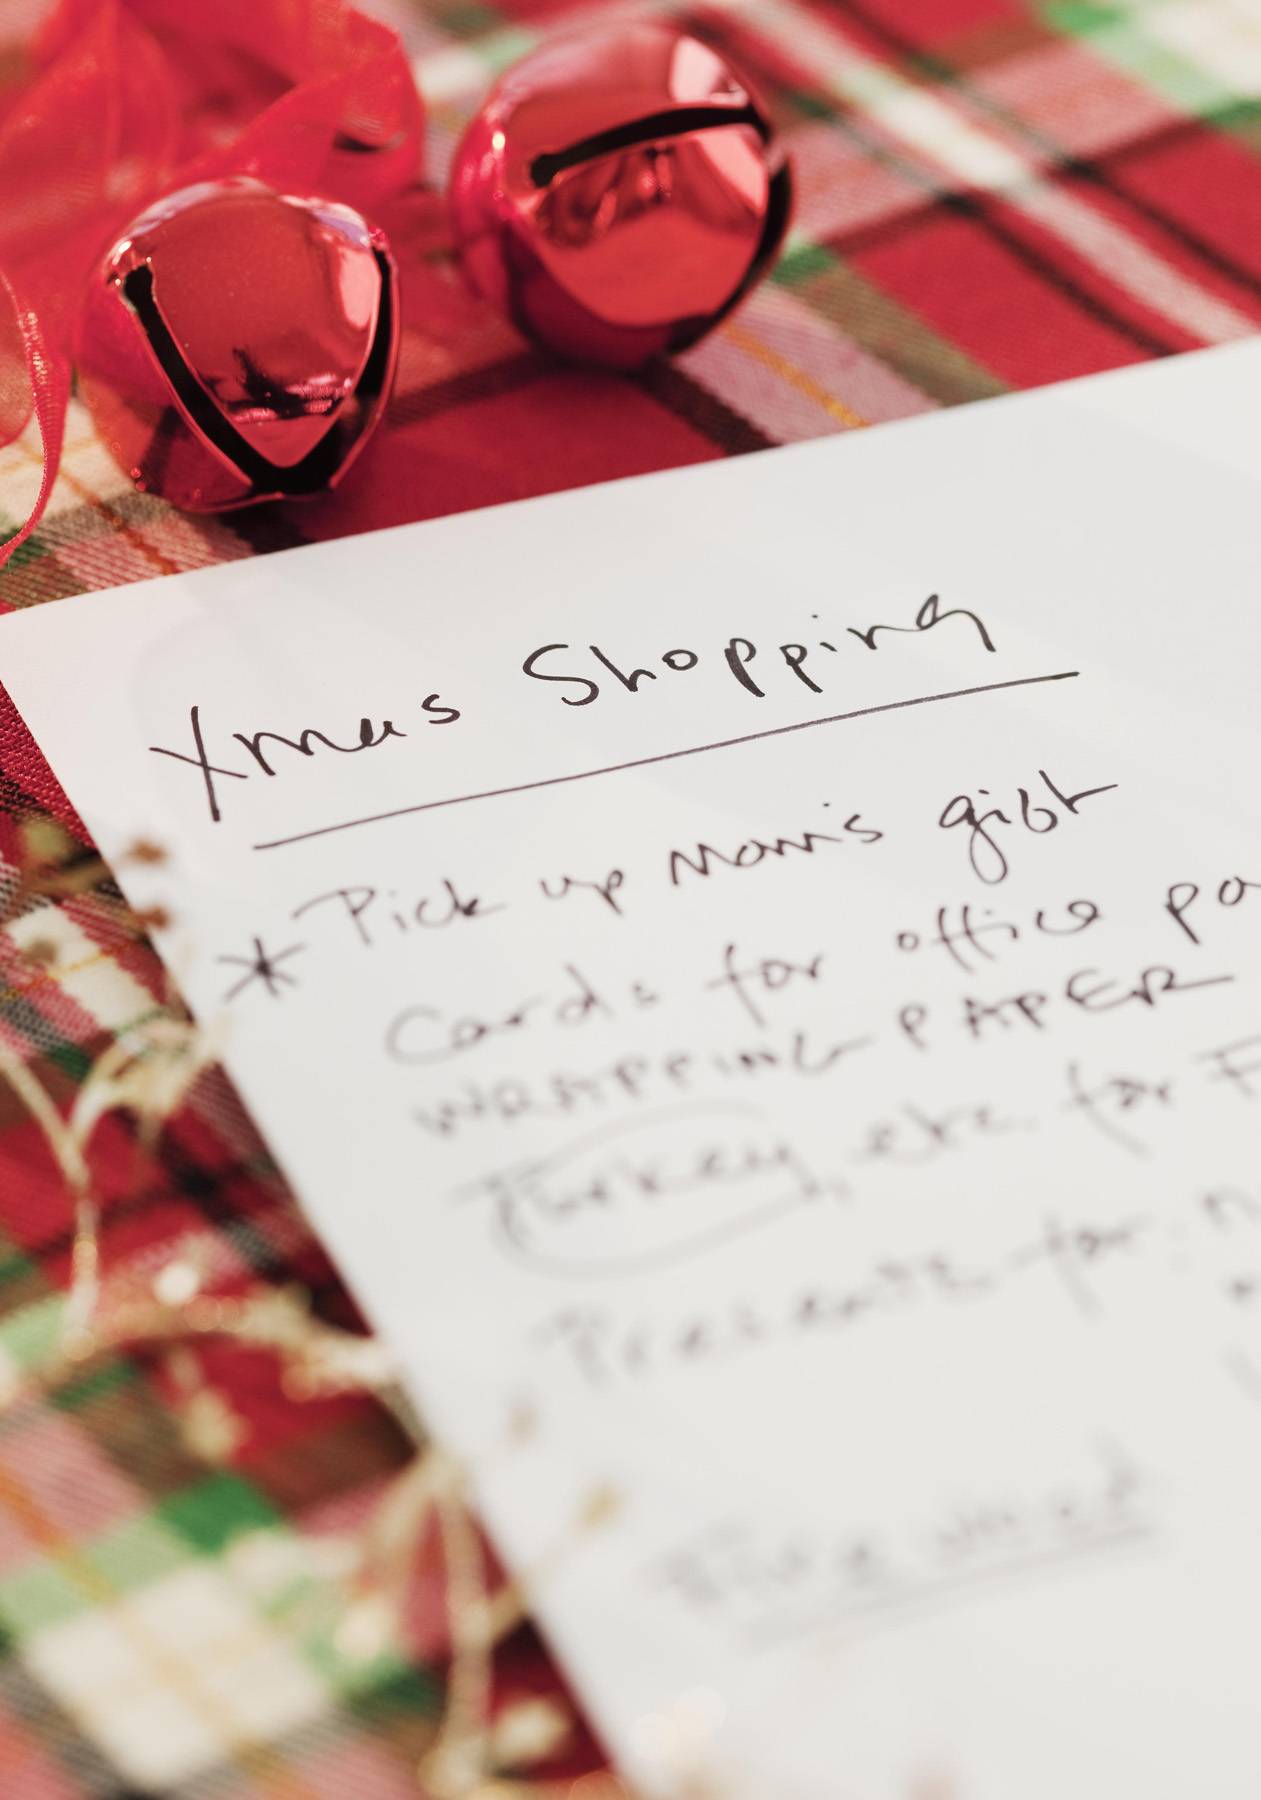 Xmas Shopping
* Pick up Mom's gift
Cards for office
WRAPPING PAPER
Turkey, etc. for
Presents for:
Firewood